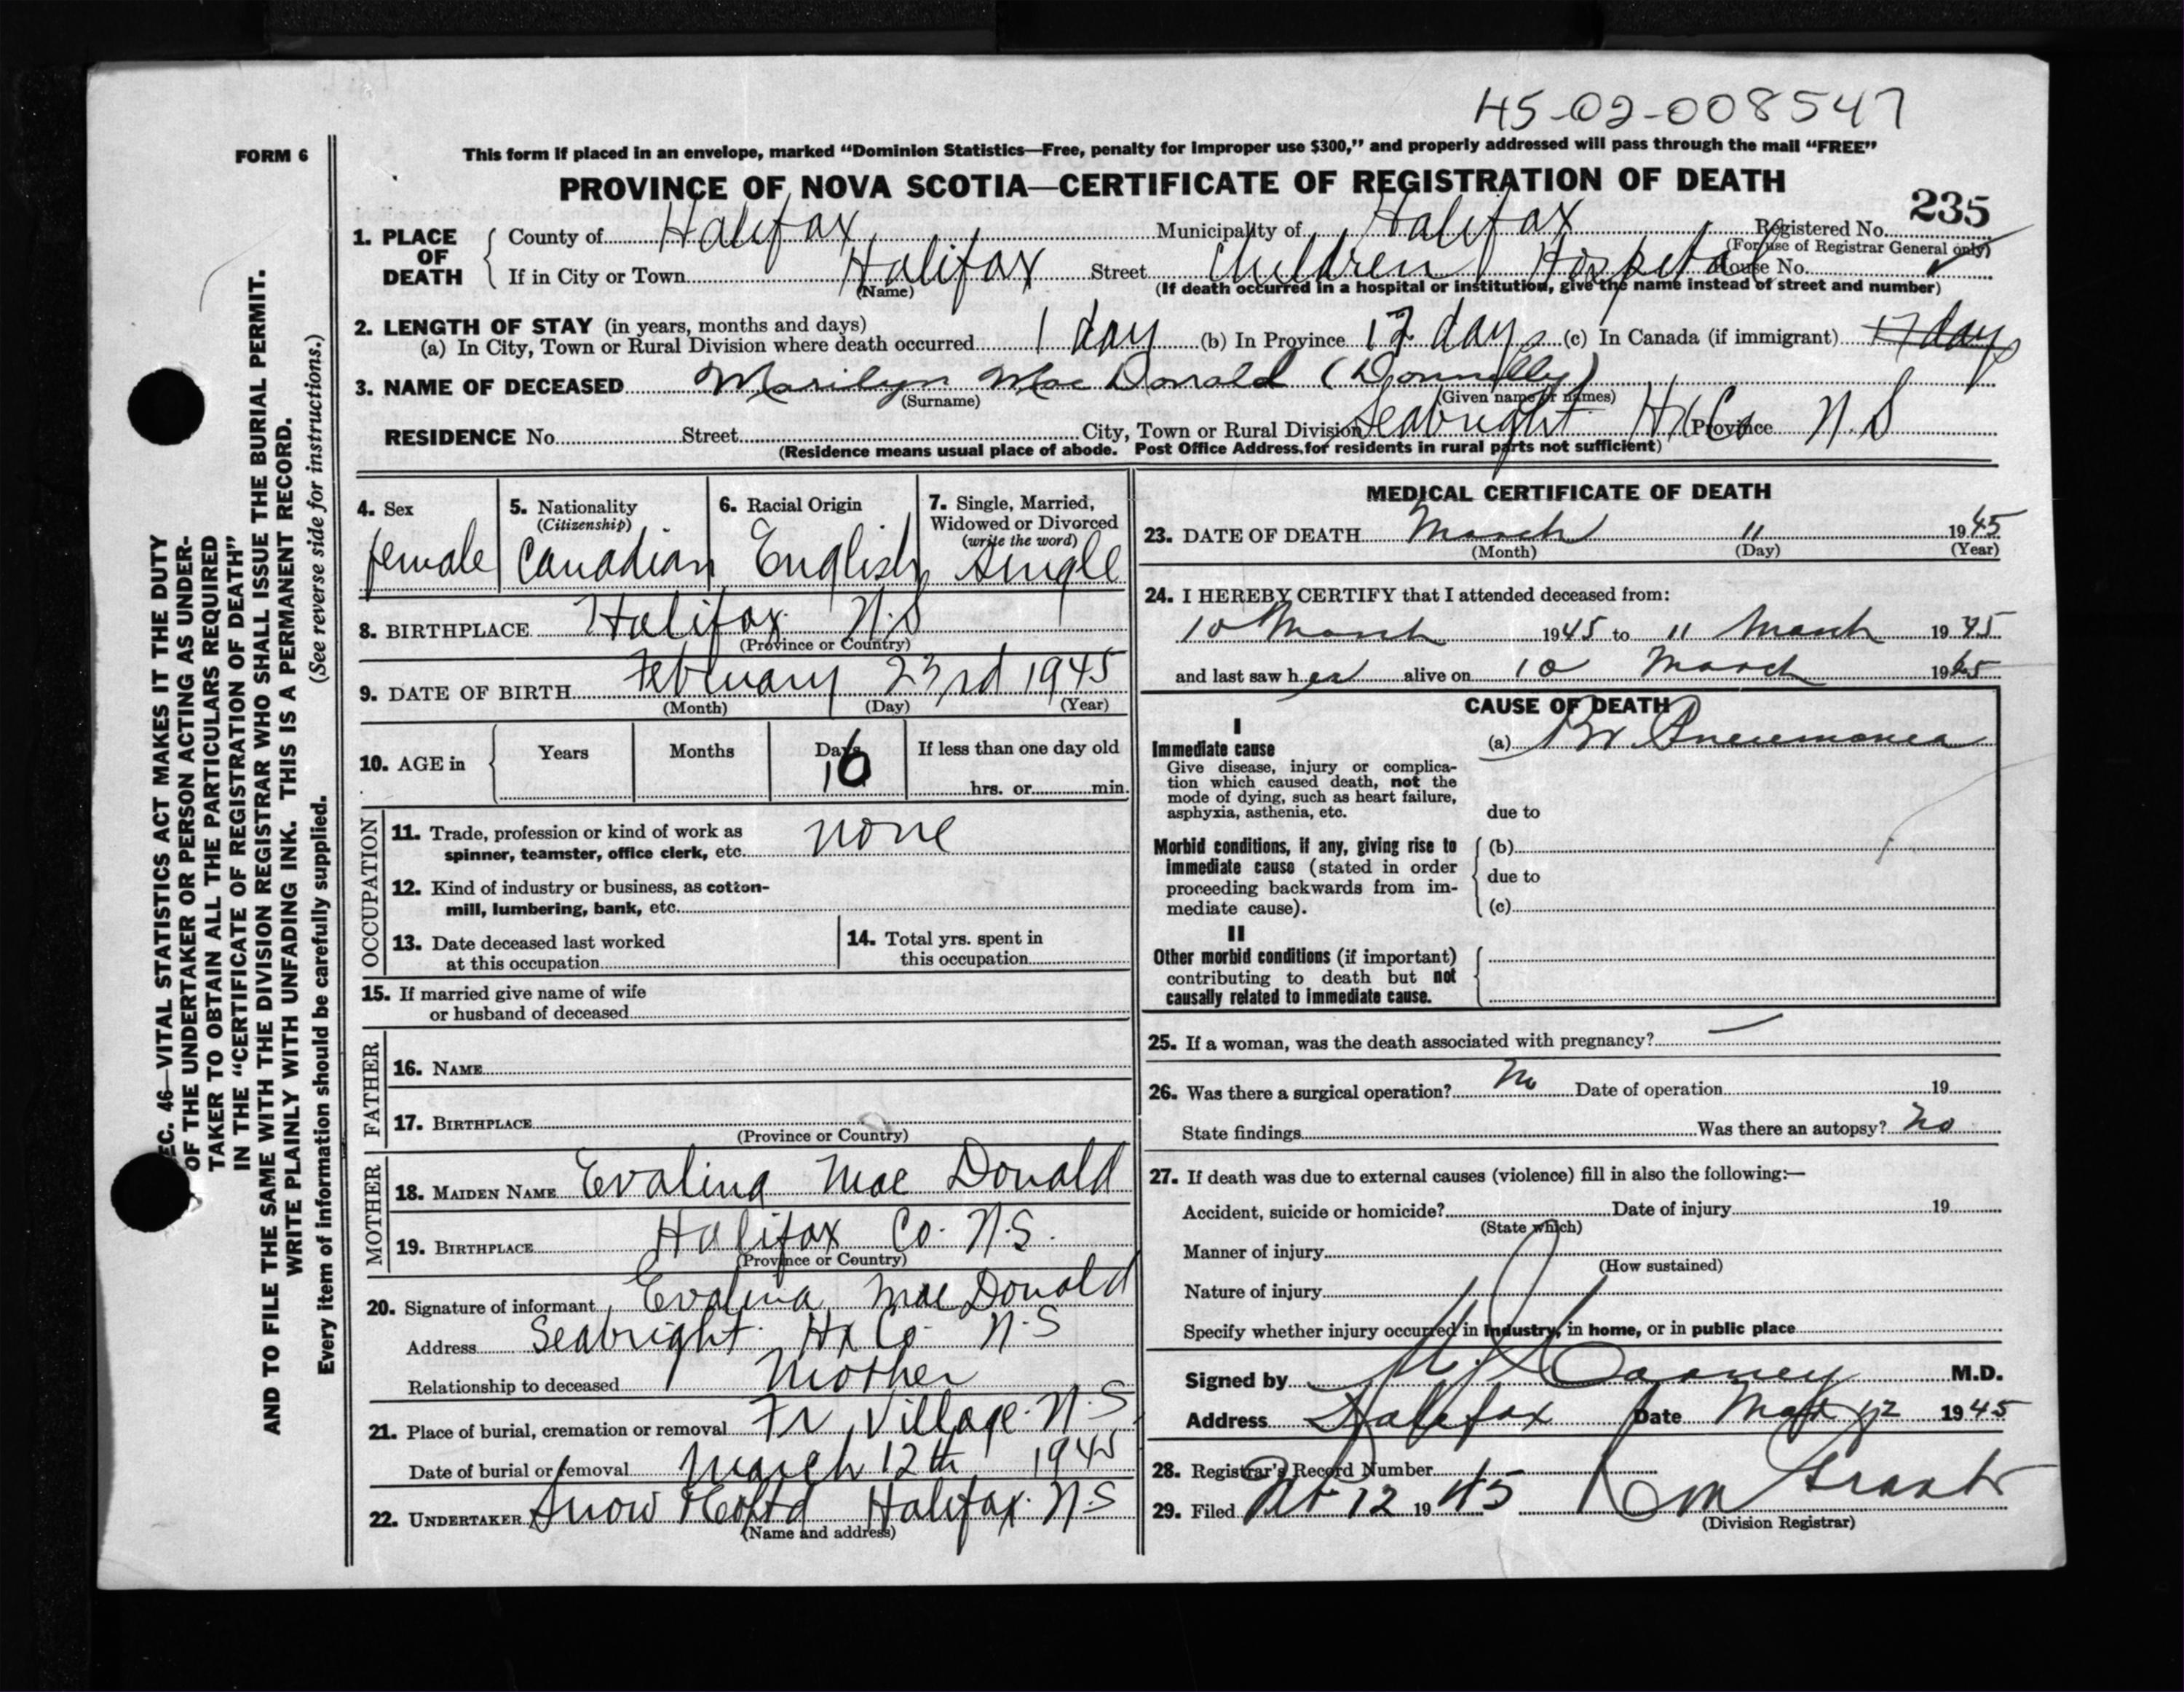 45-02-008547
FORM 6
This form if placed in an envelope, marked “Dominion Statistics—Free, penalty for improper use $300,” and properly addressed will pass through the mail “FREE”
PROVINCE OF NOVA SCOTIA—CERTIFICATE OF REGISTRATION OF DEATH
235
1. PLACE OF DEATH County of Halifax Municipality of Halifax Registered No.
(For use of Registrar General only)
If in City or Town Halifax Street Children Hospital House No.
(Name) (If death occurred in a hospital or institution, give the name instead of street and number)
2. LENGTH OF STAY (in years, months and days)
(a) In City, Town or Rural Division where death occurred 1 day (b) In Province 17 days (c) In Canada (if immigrant) 17 days
3. NAME OF DECEASED Marilyn Mac Donald (Donnelly)
(Surname) (Given name or names)
RESIDENCE No. Street City, Town or Rural Division Seabright Hx Co Province N.S
(Residence means usual place of abode. Post Office Address for residents in rural parts not sufficient)
4. Sex female
5. Nationality (Citizenship) Canadian
6. Racial Origin English
7. Single, Married, Widowed or Divorced (write the word) Single
8. BIRTHPLACE Halifax N.S
(Province or Country)
9. DATE OF BIRTH February 23rd 1945
(Month) (Day) (Year)
10. AGE in Years Months Days 16 If less than one day old
hrs. or min.
OCCUPATION
11. Trade, profession or kind of work as
spinner, teamster, office clerk, etc. none
12. Kind of industry or business, as cotton-
mill, lumbering, bank, etc.
13. Date deceased last worked
at this occupation
14. Total yrs. spent in
this occupation
15. If married give name of wife
or husband of deceased
FATHER
16. NAME
17. BIRTHPLACE
(Province or Country)
MOTHER
18. MAIDEN NAME Evalina Mac Donald
19. BIRTHPLACE Halifax Co. N.S.
(Province or Country)
20. Signature of informant Evalina Mac Donald
Address Seabright Hx Co N.S
Relationship to deceased Mother
21. Place of burial, cremation or removal Fr Village N.S
Date of burial or removal March 12th 1945
22. UNDERTAKER Snow & Co Ltd Halifax N.S
(Name and address)
MEDICAL CERTIFICATE OF DEATH
23. DATE OF DEATH March 11 1945
(Month) (Day) (Year)
24. I HEREBY CERTIFY that I attended deceased from:
10 March 1945 to 11 March 1945
and last saw her alive on 10 March 1945
CAUSE OF DEATH
I
Immediate cause (a) Br. Pneumonia
Give disease, injury or complica-
tion which caused death, not the
mode of dying, such as heart failure,
asphyxia, asthenia, etc. due to
Morbid conditions, if any, giving rise to (b)
immediate cause (stated in order due to
proceeding backwards from im-
mediate cause). (c)
II
Other morbid conditions (if important)
contributing to death but not
causally related to immediate cause.
25. If a woman, was the death associated with pregnancy? —
26. Was there a surgical operation? No Date of operation 19
State findings Was there an autopsy? No
27. If death was due to external causes (violence) fill in also the following:—
Accident, suicide or homicide? Date of injury 19
(State which)
Manner of injury
(How sustained)
Nature of injury
Specify whether injury occurred in industry, in home, or in public place
Signed by Cooney M.D.
Address Halifax Date Mar 12 1945
28. Registrar's Record Number
29. Filed 12 1945 Grant
(Division Registrar)
SEC. 46—VITAL STATISTICS ACT MAKES IT THE DUTY
OF THE UNDERTAKER OR PERSON ACTING AS UNDER-
TAKER TO OBTAIN ALL THE PARTICULARS REQUIRED
IN THE “CERTIFICATE OF REGISTRATION OF DEATH”
AND TO FILE THE SAME WITH THE DIVISION REGISTRAR WHO SHALL ISSUE THE BURIAL PERMIT.
WRITE PLAINLY WITH UNFADING INK. THIS IS A PERMANENT RECORD.
(See reverse side for instructions.)
Every item of information should be carefully supplied.